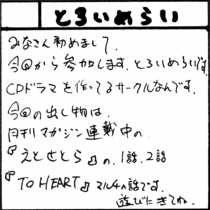 とろいめらい
みなさん初めまして。
今回から参加します、とろいめらいです。
CDドラマを作ってるサークルなんです。
今回の出し物は、
月刊マガジン連載中の
『えとせとら』の、1話、2話
『TO HEART』マルチの話です。
遊びにきてね。